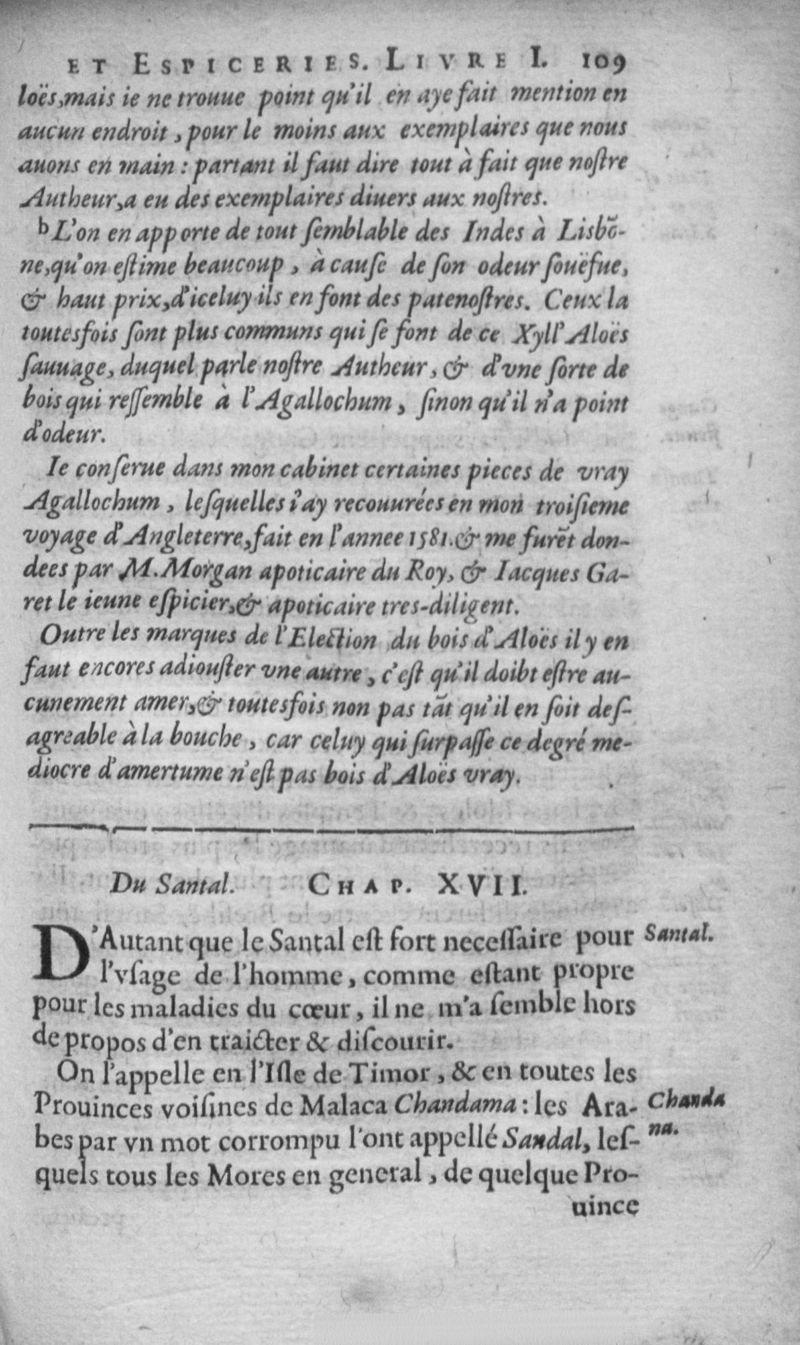 ET ESPICERIES. LIVRE I. 109
loës,mais ie ne trouue point qu'il en aye fait mention en
aucun endroit, pour le moins aux exemplaires que nous
auons en main : partant il faut dire tout à fait que noſtre
Autheur,a eu des exemplaires diuers aux noſtres.
b L'on en apporte de tout ſemblable des Indes à Lisbō-
ne,qu'on eſtime beaucoup, à cauſe de ſon odeur ſouëfue,
& haut prix,d'iceluy ils en font des patenoſtres. Ceux la
toutesfois ſont plus communs qui ſe font de ce Xyll'Aloës
ſauuage, duquel parle noſtre Autheur, & d'vne ſorte de
bois qui reſſemble à l'Agallochum, ſinon qu'il n'a point
d'odeur.
Ie conſerue dans mon cabinet certaines pieces de vray
Agallochum, leſquelles i'ay recouurées en mon troiſieme
voyage d'Angleterre,fait en l'annee 1581.& me furēt don-
dees par M.Morgan apoticaire du Roy, & Iacques Ga-
ret le ieune eſpicier,& apoticaire tres-diligent.
Outre les marques de l'Election du bois d'Aloës il y en
faut encores adiouſter vne autre, c'eſt qu'il doibt eſtre au-
cunement amer,& toutesfois non pas tāt qu'il en ſoit deſ-
agreable à la bouche, car celuy qui ſurpaſſe ce degré me-
diocre d'amertume n'eſt pas bois d'Aloës vray.
Du Santal. CHAP. XVII.
D'Autant que le Santal eſt fort neceſſaire pour Santal.
l'vſage de l'homme, comme eſtant propre
pour les maladies du cœur, il ne m'a ſemble hors
de propos d'en traicter & diſcourir.
On l'appelle en l'Iſle de Timor, & en toutes les
Prouinces voiſines de Malaca Chandama : les Ara- Chanda
bes par vn mot corrompu l'ont appellé Sandal, leſ- na.
quels tous les Mores en general, de quelque Pro-
uince